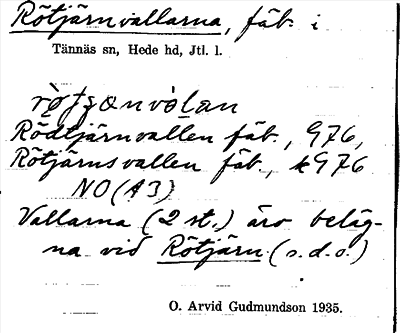 Rötjärnvallarna, fäb. i
Tännäs sn, Hede hd, Jtl. l.
Rödtjärnvallen fäb., 976,
Rötjärnsvallen fäb., k 976
NO (A3)
Vallarna (2 st.) äro beläg-
na vid Rötjärn (s.d.o.)
O. Arvid Gudmundson 1935.